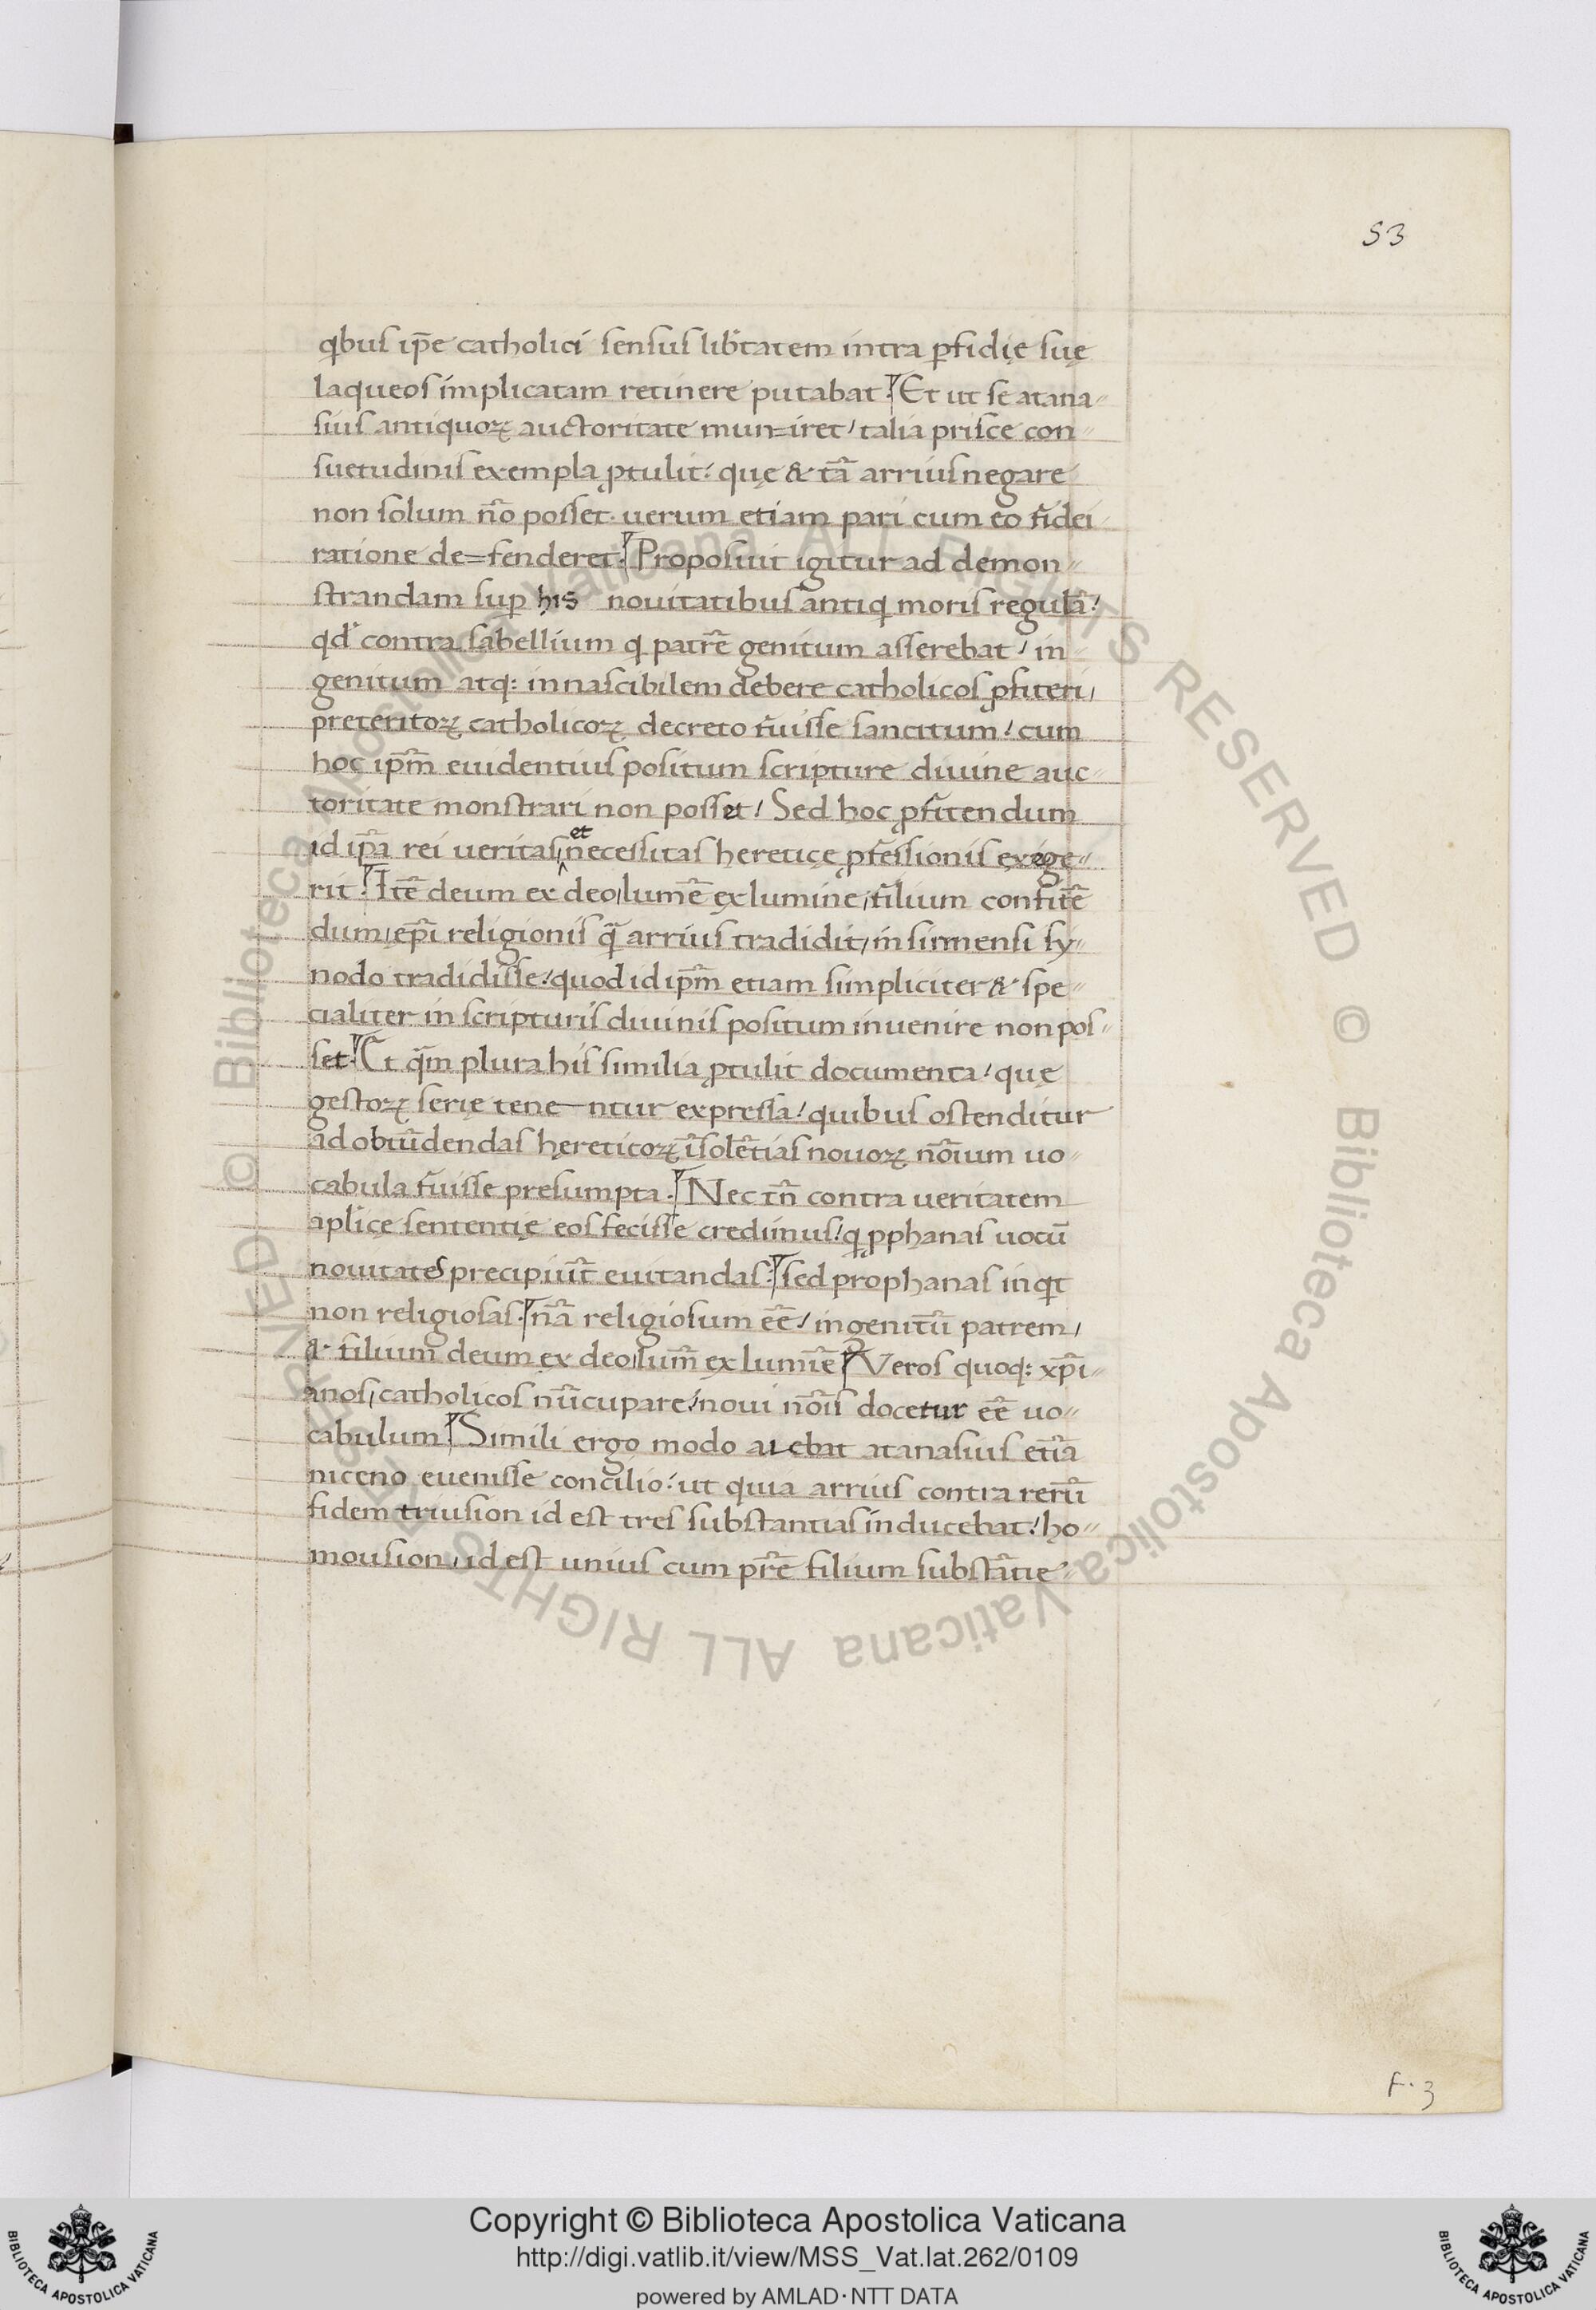 53
qbus ip̄e catholici sensus lib̄tatem intra ꝑfidię suę
laqueos implicatam retinere putabat. Et ut se atana-
sius antiquoꝝ auctoritate mun=iret / talia prisce con-
suetudinis exempla ꝓtulit / quę & tā arrius negare
non solum nō posset. uerum etiam pari cum eo fidei
ratione de=fenderet. Proposuit igitur ad demon-
strandam suꝑ his nouitatibus antiq moris regulā /
qd̓ contra sabellium q patrē genitum asserebat / in-
genitum atq: innascibilem debere catholicos ꝓfiteri,
preteritoꝝ catholicoꝝ decreto fuisse sancitum / cum
hoc ip̄m euidentius positum scripture diuine auc-
toritate monstrari non posset / Sed hoc ꝓfitendum
id ip̄a rei ueritas, et necessitas hereticę ꝓfessionis exige-
rit. Itē deum ex deo, lumē ex lumine, filium confitē
dum, ep̄i religionis q̄ arrius tradidit, in sirmensi sy-
nodo tradidisse / quod id ip̄m etiam simpliciter & spe-
cialiter in scripturis diuinis positum inuenire non pos-
set. Et qm̄ plura his similia ꝓtulit documenta / quę
gestoꝝ serię tene-ntur expressa / quibus ostenditur
ad obtūdendas hereticoꝝ īsolētias nouoꝝ nōīum uo-
cabula fuisse presumpta. Nec tn̄ contra ueritatem
aplice sententię eos fecisse credimus / q ꝓphanas uocū
nouitates precipiūt euitandas. sed prophanas inqt
non religiosas. nā religiosum eē / ingenitū patrem,
& filium deum ex deo, lum̄ ex lumīe. Veros quoq: xp̄i-
anos, catholicos nūcupare / noui nōīs docetur eē uo-
cabulum. Simili ergo modo aiebat atanasius etiā
niceno euenisse concilio / ut quia arrius contra rerū
fidem triusion id est tres substantias inducebat / ho-
mousion, id est unius cum pr̄e filium substātię
F. 3
Copyright © Biblioteca Apostolica Vaticana
http://digi.vatlib.it/view/MSS_Vat.lat.262/0109
powered by AMLAD·NTT DATA
BIBLIOTECA APOSTOLICA VATICANA
BIBLIOTECA APOSTOLICA VATICANA
© Biblioteca Apostolica Vaticana ALL RIGHTS RESERVED © Biblioteca Apostolica Vaticana ALL RIGHTS RESERVED